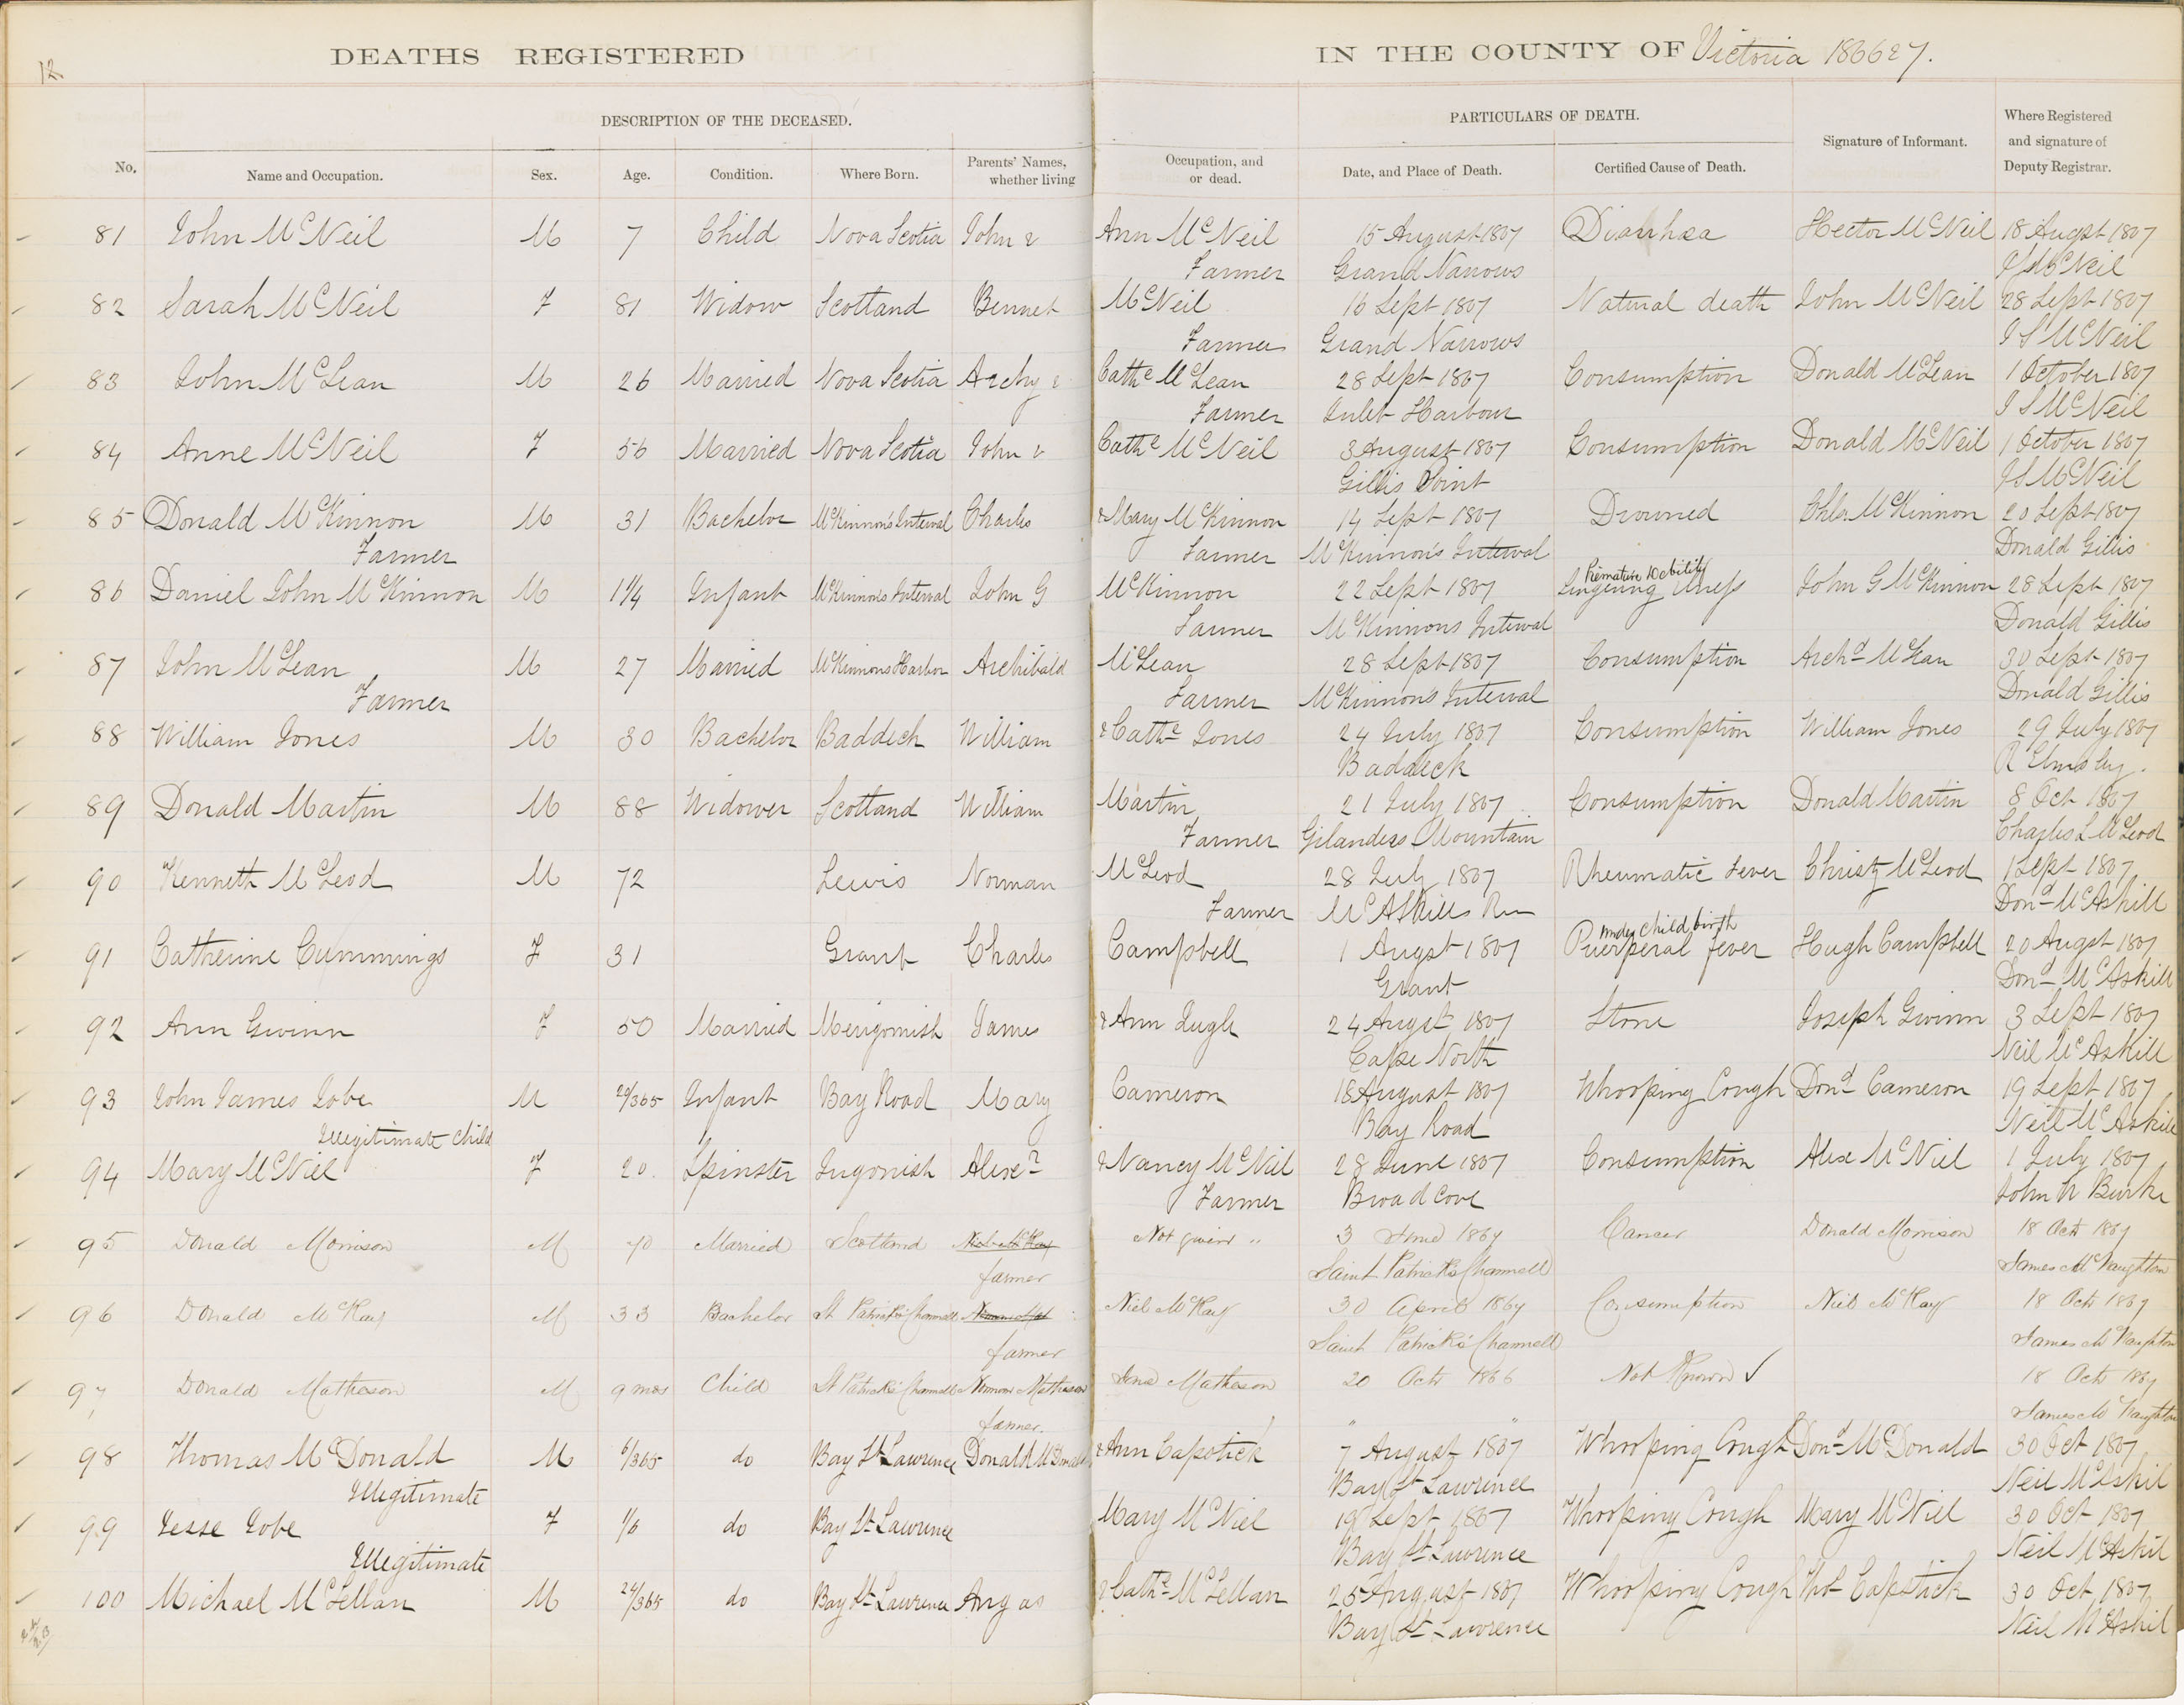 12
DEATHS REGISTERED IN THE COUNTY OF Victoria 1866 & 7.
DESCRIPTION OF THE DECEASED. PARTICULARS OF DEATH. Where Registered and signature of Deputy Registrar.
No. Name and Occupation. Sex. Age. Condition. Where Born. Parents' Names, whether living Occupation, and or dead. Date, and Place of Death. Certified Cause of Death. Signature of Informant.
81 John McNeil M 7 Child Nova Scotia John & Ann McNeil 15 August 1867 Diarrhea Hector McNeil 18 Augst 1867
Farmer Grand Narrows McNeil
82 Sarah McNeil F 81 Widow Scotland Bennet McNeil 16 Sept 1867 Natural death John McNeil 28 Sept 1867
Farmer Grand Narrows J S McNeil
83 John McLean M 26 Married Nova Scotia Archy & Cathe McLean 28 Sept 1867 Consumption Donald McLean 1 October 1867
Farmer Inlet Harbour J S McNeil
84 Anne McNeil F 56 Married Nova Scotia John & Cathe McNeil 3 August 1867 Consumption Donald McNeil 1 October 1867
Gillis Point J S McNeil
85 Donald McKinnon M 31 Bachelor McKinnon's Interval Charles & Mary McKinnon 14 Sept 1867 Drowned Chls. McKinnon 20 Sept 1867
Farmer Farmer McKinnon's Interval Donald Gillis
Premature Debility
86 Daniel John McKinnon M 1 1/4 Infant McKinnons Interval John G McKinnon 22 Sept 1867 Lingering illness John G McKinnon 28 Sept 1867
Farmer McKinnons Interval Donald Gillis
87 John McLean M 27 Married McKinnons Harbor Archibald McLean 28 Sept 1867 Consumption Archd McLean 30 Sept 1867
Farmer Farmer McKinnons Interval Donald Gillis
88 William Jones M 30 Bachelor Baddeck William & Cathe Jones 24 July 1867 Consumption William Jones 29 July 1867
Baddeck R Elmsly.
89 Donald Martin M 88 Widower Scotland William Martin 21 July 1867 Consumption Donald Martin 8 Oct 1867
Farmer Gilanders Mountain Charles L McLeod
90 Kenneth McLeod M 72 Lewis Norman McLeod 28 July 1867 Rheumatic Fever Christy McLeod 1 Sept 1867
Farmer McAskills Run Dond McAskill
under child birth
91 Catherine Cummings F 31 Grant Charles Campbell 1 Augst 1867 Puerperal fever Hugh Campbell 20 Augst 1867
Grant Dond McAskill
92 Ann Gwinn F 50 Married Merigomish James & Ann Zugh 24 Augst 1867 Stone Joseph Gwinn 3 Sept 1867
Cape North Neil McAskill
93 John James Jobe M 29/365 Infant Bay Road Mary Cameron 18 August 1867 Whooping Cough Dond Cameron 19 Sept 1867
Illegitimate Child Bay Road Neil McAskill
94 Mary McNiel F 20. Spinster Ingonish Alexr & Nancy McNiel 28 June 1867 Consumption Alex McNiel 1 July 1867
Farmer Broad Cove John N Burke
95 Donald Morrison M 70 Married Scotland Niel McKay Not given " 3 June 1867 Cancer Donald Morrison 18 Octr 1867
farmer Saint Patricks Channell James McNaughton
96 Donald McKay M 33 Bachelor St Patricks Channell Niel McKay 30 April 1867 Consumption Niel McKay 18 Octr 1867
farmer Saint Patricks Channell James McNaughton
97 Donald Matheson M 9 mos Child St Patricks Channell Norman Matheson Matheson 20 Octr 1866 Not Known ✓ 18 Octr 1867
farmer. " " James McNaughton
98 Thomas McDonald M 6/365 do Bay St Lawrence Donald McDonald & Ann Capstick 7 August 1867 Whooping Cough Dond McDonald 30 Oct 1867
Illegitimate Bay St Lawrence Neil McAskil
99 Jesse Jobe F 1/6 do Bay St Lawrence Mary McNiel 19 Sept 1867 Whooping Cough Mary McNiel 30 Oct 1867
Illegitimate Bay St Lawrence Neil McAskil
100 Michael McLellan M 24/365 do Bay St Lawrence Angas & Cathe McLellan 25 August 1867 Whooping Cough Capstick 30 Oct 1867
Bay St Lawrence Neil McAskil